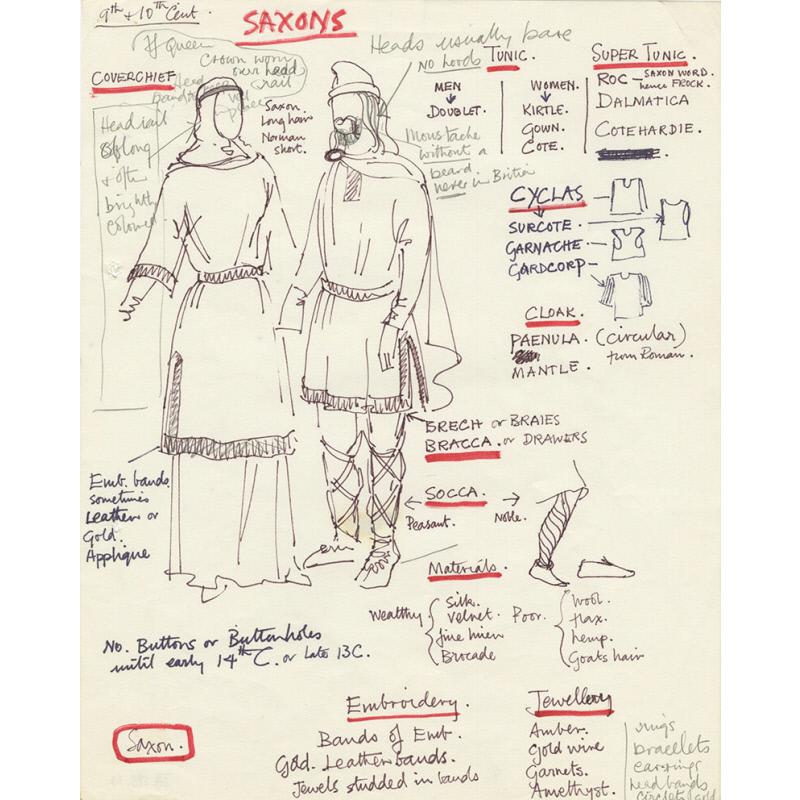 9th + 10th Cent.
SAXONS
If Queen
Crown worn
over head
rail
Heads usually bare
NO hoods
COVERCHIEF
Head
Saxon
Long hair
Norman
short.
Head rail
long
& often
brightly
coloured
Moustache
without a
beard
never in Britain
TUNIC.
MEN
DOUBLET.
WOMEN.
KIRTLE.
GOWN.
COTE.
SUPER TUNIC.
ROC - SAXON WORD.
hence FROCK.
DALMATICA
COTEHARDIE.
CYCLAS
SURCOTE.
GARNACHE -
GARDCORP -
CLOAK.
PAENULA. (circular)
from Roman.
MANTLE.
BRECH or BRAIES
BRACCA. or DRAWERS
SOCCA.
Peasant.
Noble.
Emb. bands
sometimes
Leather or
Gold.
Applique
Materials.
Wealthy
Silk.
velvet.
fine linen
Brocade
Poor.
Wool.
flax.
hemp.
Goats hair
No. Buttons or Buttonholes
until early 14th C. or Late 13C.
Saxon.
Embroidery.
Bands of Emb.
Gold. Leather bands.
Jewels studded in bands
Jewellery
Amber.
Gold wire
Garnets.
Amethyst.
rings
bracelets
earrings
head bands
circlets gold